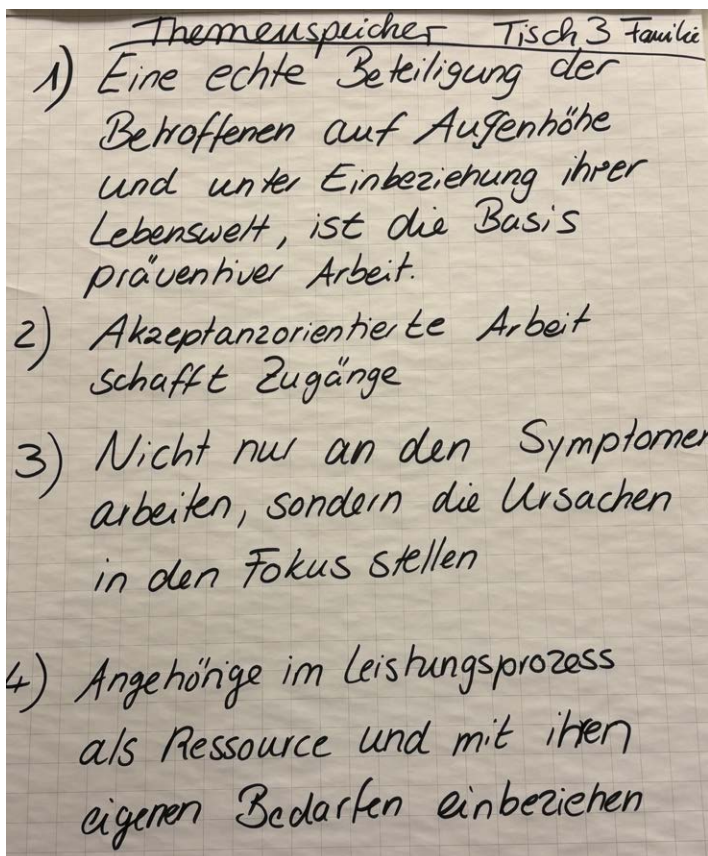 Themenspeicher Tisch 3 Familie
1) Eine echte Beteiligung der
Betroffenen auf Augenhöhe
und unter Einbeziehung ihrer
Lebenswelt, ist die Basis
präventiver Arbeit.
2) Akzeptanzorientierte Arbeit
schafft Zugänge
3) Nicht nur an den Symptomen
arbeiten, sondern die Ursachen
in den Fokus stellen
4) Angehörige im Leistungsprozess
als Ressource und mit ihren
eigenen Bedarfen einbeziehen